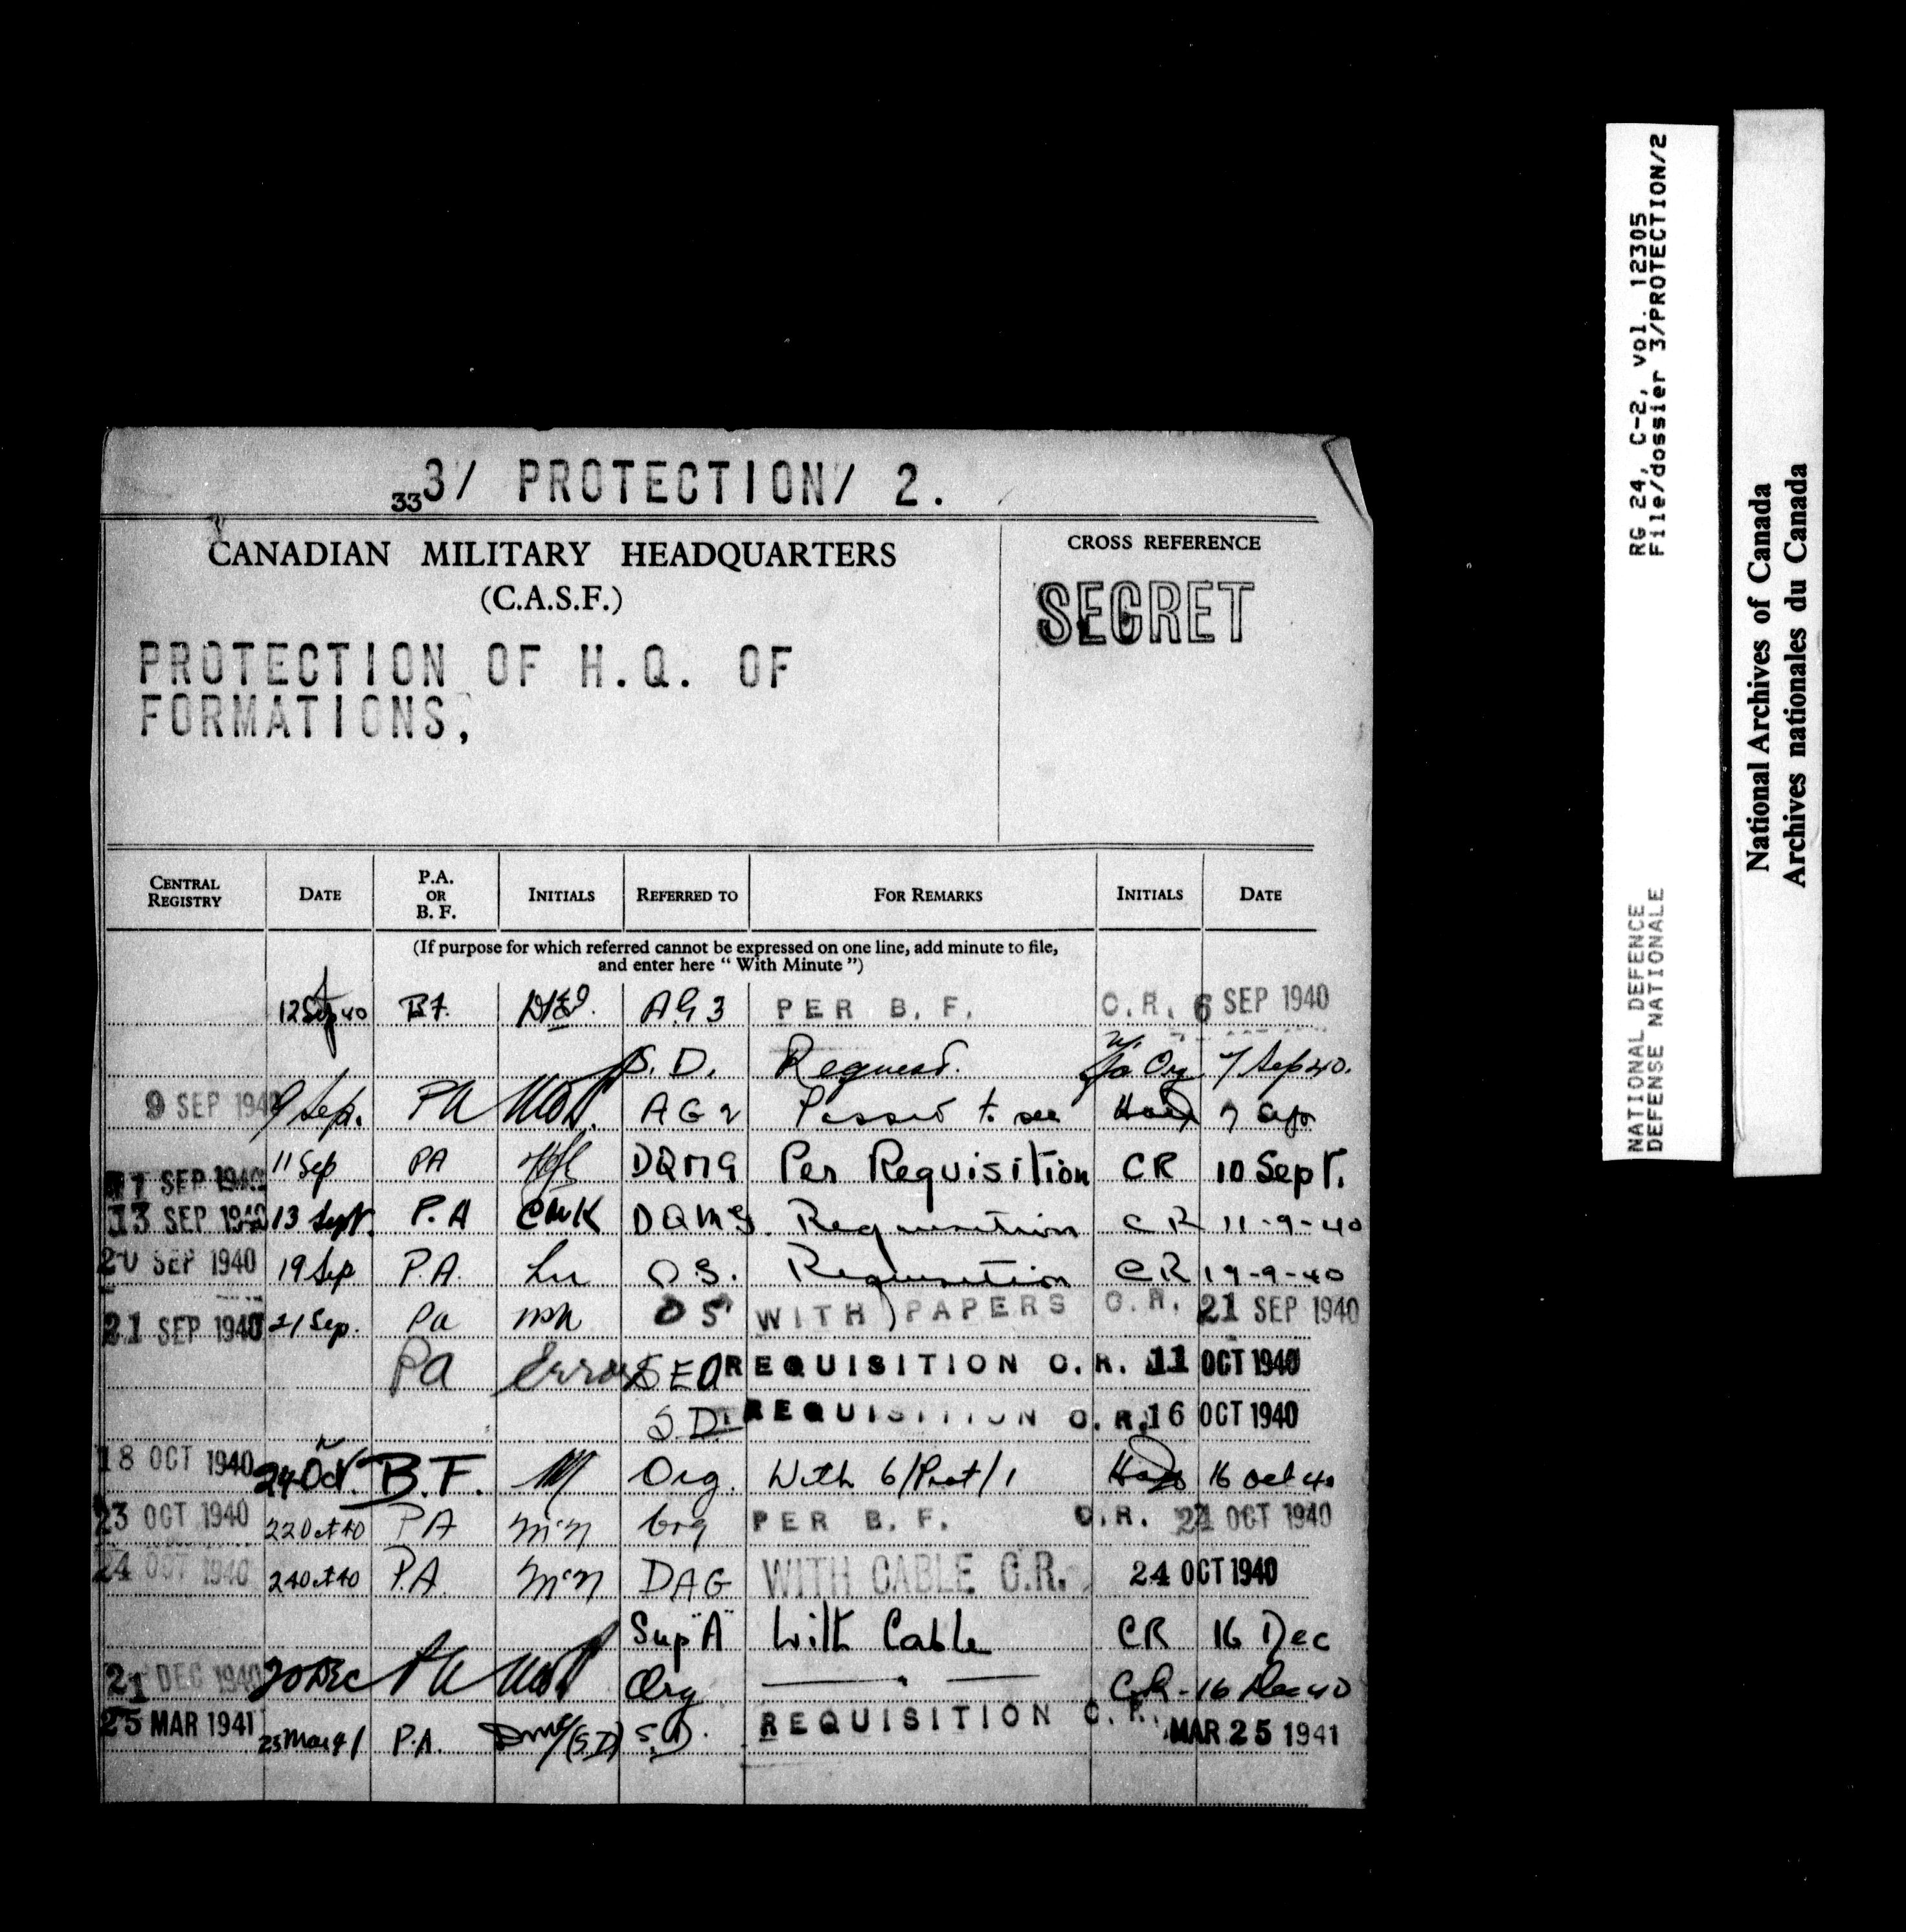 33 3/ PROTECTION/ 2.
CANADIAN MILITARY HEADQUARTERS
(C.A.S.F.)
CROSS REFERENCE
SECRET
PROTECTION OF H.Q. OF
FORMATIONS,
CENTRAL REGISTRY DATE P.A. OR B.F. INITIALS REFERRED TO FOR REMARKS INITIALS DATE
(If purpose for which referred cannot be expressed on one line, add minute to file,
and enter here “ With Minute ”)
12 Sep 40 B.F. AG 3 PER B. F. C.R. 6 SEP 1940
S.D. Request. Org 7 Sep 40.
9 SEP 1940 9 Sep. PA AG 2 Passed to see 7 Sep
11 SEP 1940 11 Sep PA DQMG Per Requisition CR 10 Sept.
13 SEP 1940 13 Sept. P.A CWK DQMG. Requisition CR 11-9-40
20 SEP 1940 19 Sep P.A. D.S. Requisition CR 19-9-40
21 SEP 1940 21 Sep. Pa DS WITH PAPERS C.R. 21 SEP 1940
Pa Error SEO REQUISITION C.R. 11 OCT 1940
S.D. REQUISITION C.R. 16 OCT 1940
18 OCT 1940 24 Oct. B.F. Org. With 6/Prot/1 16 Oct 40
23 OCT 1940 22 Oct 40 PA McN Org PER B. F. C.R. 21 OCT 1940
24 OCT 1940 24 Oct 40 P.A. McN DAG WITH CABLE C.R. 24 OCT 1940
Sup "A" With Cable CR 16 Dec
21 DEC 1940 20 DEC PA Org — " — C.R. - 16 Dec 40
25 MAR 1941 25 Mar 41 P.A. (S.D) S.D. REQUISITION C.R. MAR 25 1941
RG 24, C-2, vol. 12305
File/dossier 3/PROTECTION/2
NATIONAL DEFENCE
DEFENSE NATIONALE
National Archives of Canada
Archives nationales du Canada